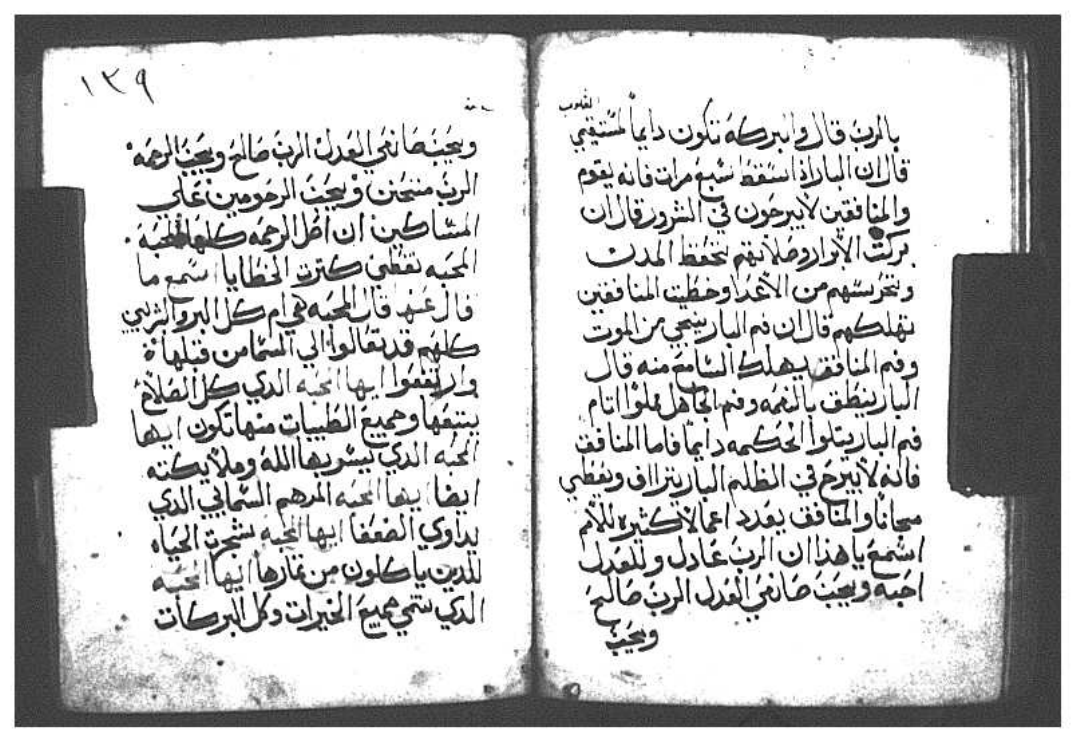 القلوب
بالرب قال والبركه تكون دايماً لمستقيمي
قال ان البار اذا سقط سبع مرات فانه يقوم
والمنافقين لا يبرحون في الشرور قال ان
بركت الابرار وصلاتهم تحفظ المدن
وتحرسهم من الاعدا وخطيت المنافقين
تهلكهم قال ان فم البار ينجي من الموت
وفم المنافق يهلك السامع منه قال
البار ينطق بالنعمه وفم الجاهل مملوا اثام
فم البار يتلوا الحكمه دايماً فاما المنافق
فانه لا يبرح في الظلم البار يتراف ويعطي
مجاناً والمنافق يعدد اعمالا كثيره للأمم
اسمع يا هذا ان الرب عادل وللعدل
احبه ويحب صانعي العدل الرب صالح
ويحب
١٣٩
ويحب صانعي العدل الرب صالح ويحب الرحمه
الرب متحنن ويحب الرحومين علي
المساكين ان اصل الرحمه كلها المحبه
المحبه تغطي كثرت الخطايا اسمع ما
قال عنها قال المحبه هي ام كل البر والذين
كلهم قد تعالوا الي السما من قبلها
وارتفعوا ايها المحبه الذي كل الصلاح
يتبعها وجميع الطيبات منها تكون ايها
المحبه الذي يسر بها الله وملايكته
ايضا ايها المحبه المرهم السمايي الذي
يداوي الضعفا ايها المحبه شجرت الحياه
للدين ياكلون من ثمارها ايها المحبه
الذي تنتمي جميع الخيرات وكل البركات